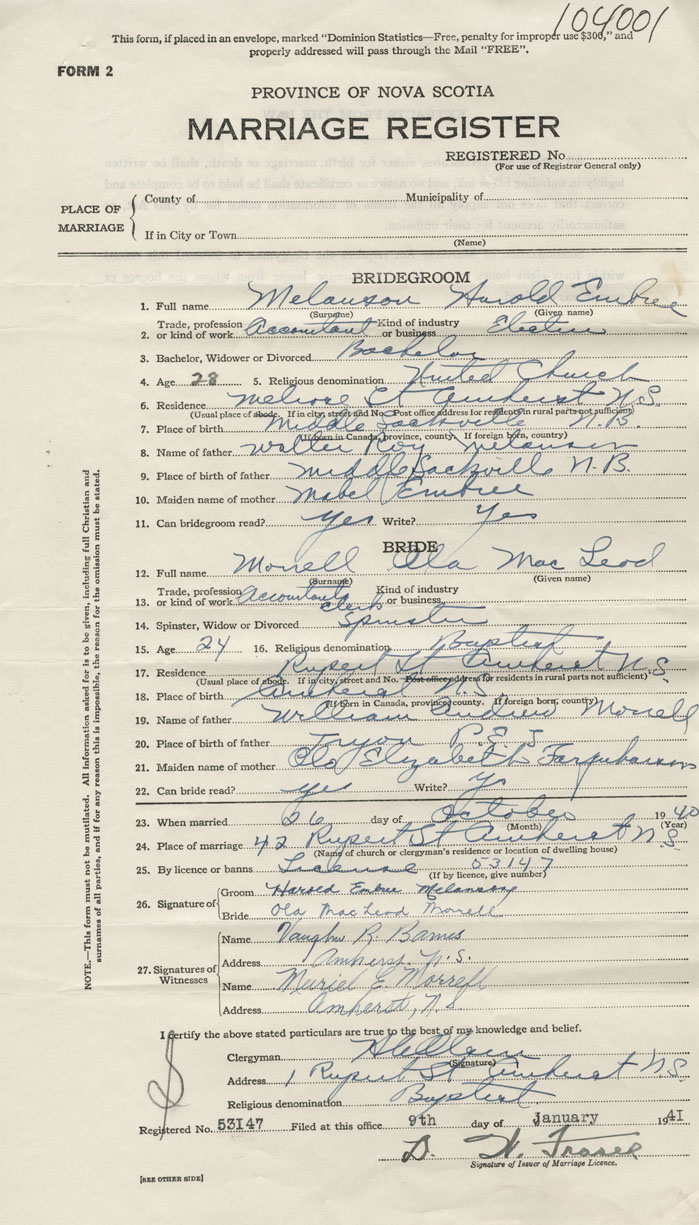 104001
This form, if placed in an envelope, marked "Dominion Statistics—Free, penalty for improper use $300," and
properly addressed will pass through the Mail "FREE".
FORM 2
PROVINCE OF NOVA SCOTIA
MARRIAGE REGISTER
REGISTERED No.
(For use of Registrar General only)
PLACE OF MARRIAGE
County of Municipality of
If in City or Town
(Name)
BRIDEGROOM
1. Full name Melanson Harold Embree
(Surname) (Given name)
Trade, profession Kind of industry
2. or kind of work Accountant or business
3. Bachelor, Widower or Divorced Bachelor
4. Age 28 5. Religious denomination United Church
6. Residence Melrose St Amherst N.S.
(Usual place of abode. If in city, street and No. Post office address for residents in rural parts not sufficient)
7. Place of birth Middle Sackville N.B.
(If born in Canada, province, county. If foreign born, country)
8. Name of father Walter Roy Melanson
9. Place of birth of father Middle Sackville N.B.
10. Maiden name of mother Mabel Embree
11. Can bridegroom read? Yes Write? Yes
BRIDE
12. Full name Morrell Ola Mac Leod
(Surname) (Given name)
Trade, profession Kind of industry
13. or kind of work Accountants clerk or business
14. Spinster, Widow or Divorced Spinster
15. Age 24 16. Religious denomination Baptist
17. Residence Rupert St Amherst N.S.
(Usual place of abode. If in city, street and No. Post office address for residents in rural parts not sufficient)
18. Place of birth Amherst N.S.
(If born in Canada, province, county. If foreign born, country)
19. Name of father William Andrew Morrell
20. Place of birth of father Tryon P.E.I
21. Maiden name of mother Ola Elizabeth Farquharson
22. Can bride read? yes Write? Yes
23. When married 26 day of October 1940
(Month) (Year)
24. Place of marriage 42 Rupert St Amherst N.S.
(Name of church or clergyman's residence or location of dwelling house)
25. By licence or banns License 53147
(If by licence, give number)
26. Signature of
Groom Harold Embree Melanson
Bride Ola MacLeod Morrell
27. Signatures of Witnesses
Name Vaughn R. Barnes
Address Amherst N.S.
Name Muriel E. Morrell
Address Amherst, N.S
I certify the above stated particulars are true to the best of my knowledge and belief.
Clergyman
(Signature)
Address 1 Rupert St Amherst N.S.
Religious denomination Baptist
Registered No. 53147 Filed at this office 9th day of January 1941
Signature of Issuer of Marriage Licence.
[SEE OTHER SIDE]
NOTE.—This form must not be mutilated. All information asked for is to be given, including full Christian and
surnames of all parties, and if for any reason this is impossible, the reason for the omission must be stated.